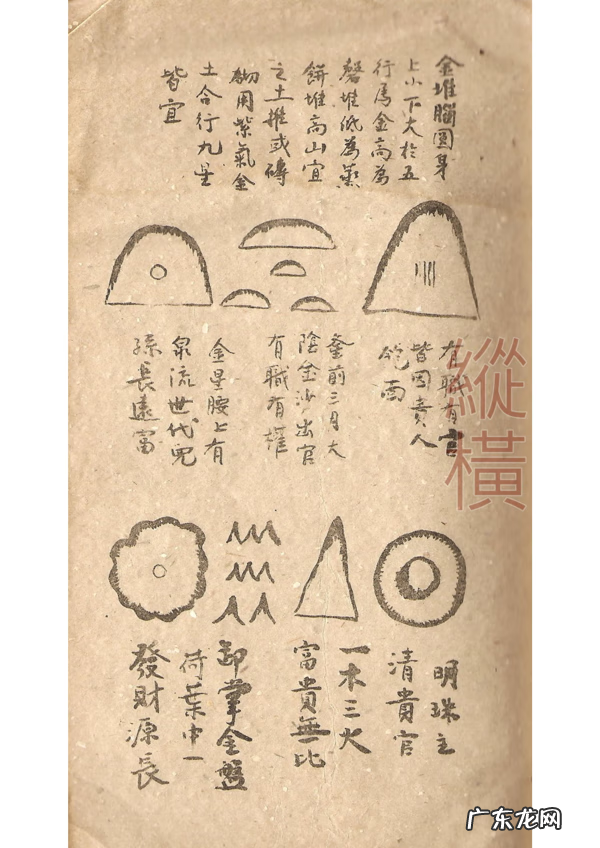 金堆腦圓身
上小下大於五
行為金高為
磬堆低為蒸
餅堆高山宜
之土堆或磚
砌用紫氣金
土合行九星
皆宜
有職有官
皆因貴人
面
前三月大
陰金沙出官
有職有權
金星腰上有
泉流世代兒
孫長遠富
明珠主
清貴官
一木三火
富貴無比
卸掌金盤
荷葉中一
發財源長
縱橫
广东龙网